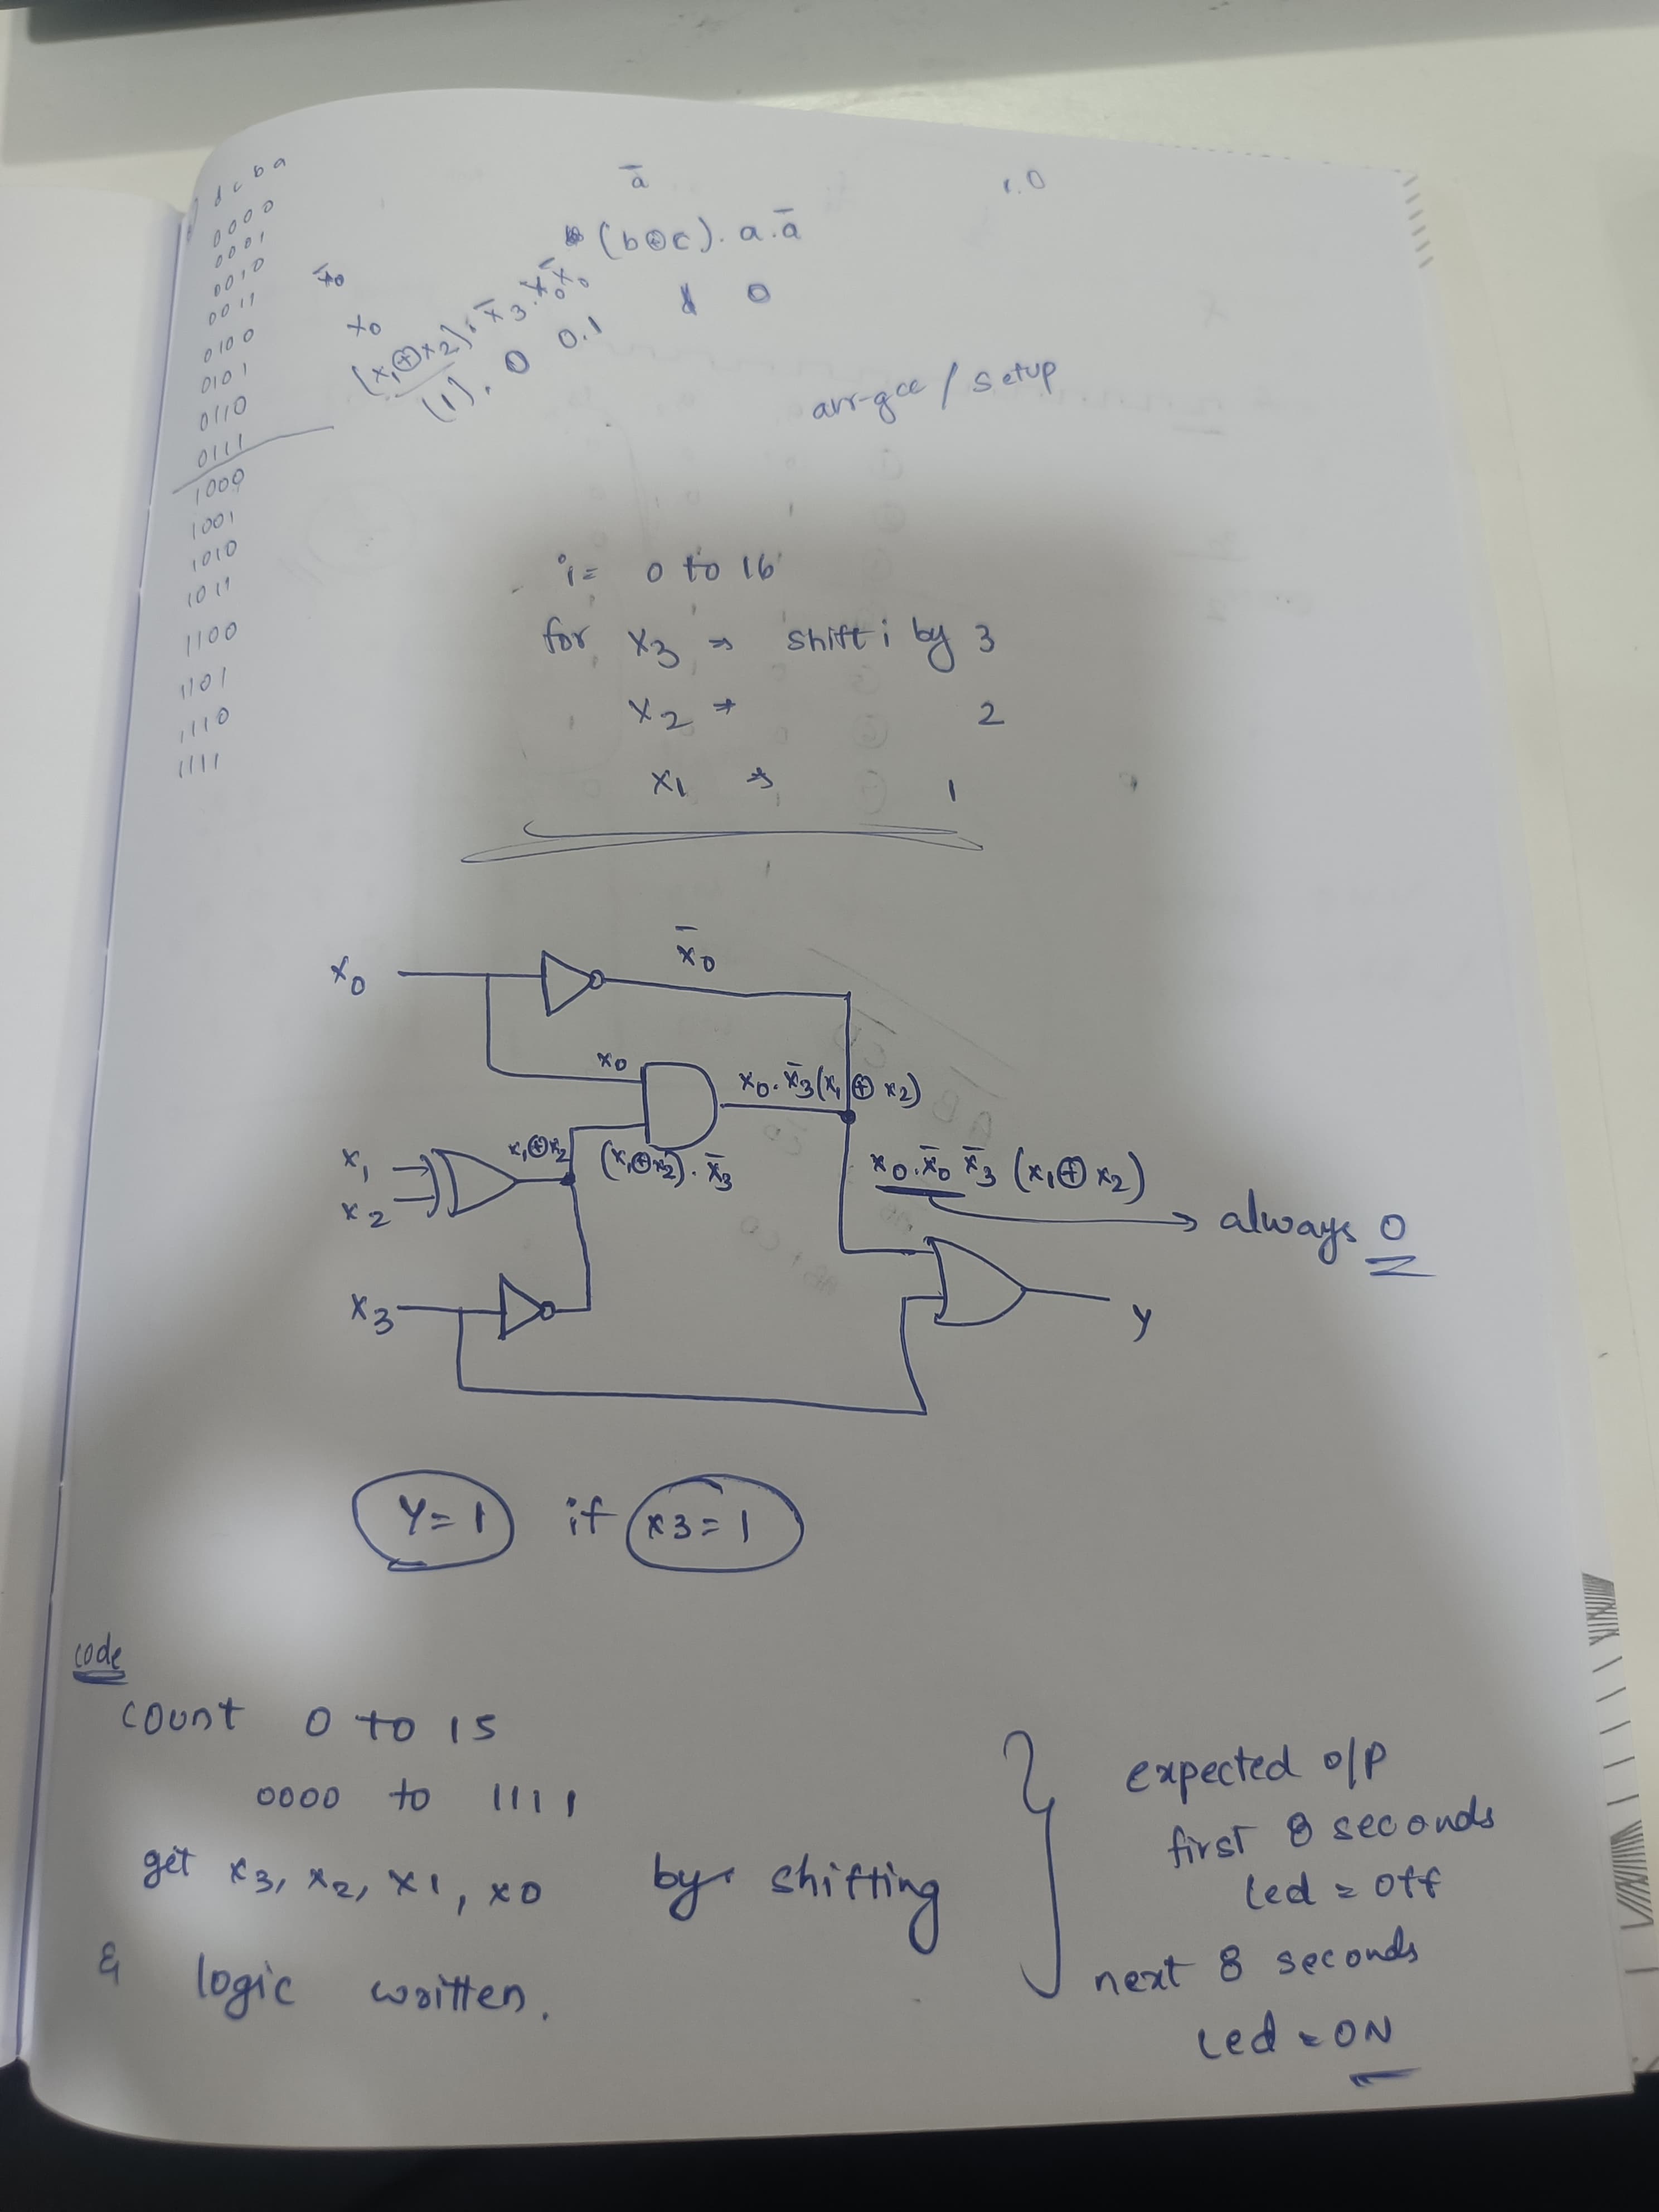 d c b a
0000
0001
0010
0011
0100
0101
0110
0111
1000
1001
1010
1011
1100
1101
1110
1111
a̅
1.0
(b⊕c). a.a̅
x̅0
x0
(x1⊕x2). x̅3. x̅0 x0
(1). 0 0.1
0
avr-gcc / setup
i= 0 to 16
for x3 ⇒ shift i by 3
x2 ⇒ 2
x1 ⇒ 1
x0
x̅0
x0
x0. x̅3(x1 ⊕ x2)
x1
x2
x1⊕x2
(x1⊕x2). x̅3
x0. x̅0 x̅3 (x1⊕ x2)
→ always 0
x3
y
Y=1 if x3=1
code
count 0 to 15
0000 to 1111
get x3, x2, x1, x0 by shifting
& logic written.
expected o/p
first 8 seconds
led = off
next 8 seconds
led = ON